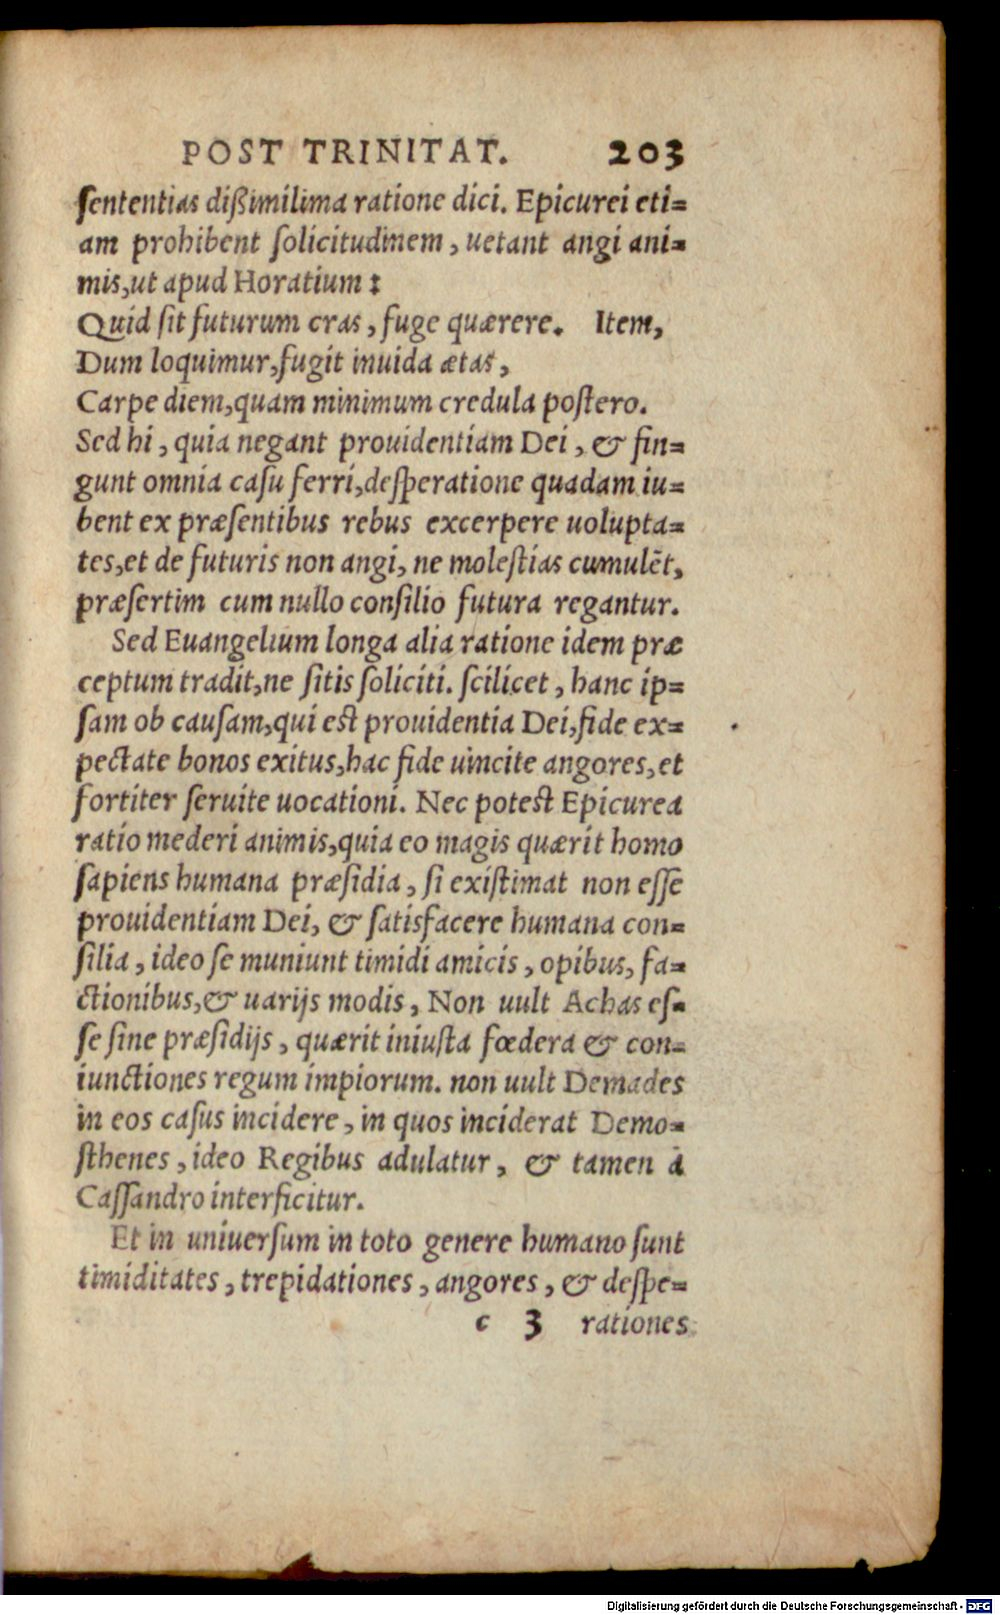 POST TRINITAT. 203
sententias dißimilima ratione dici. Epicurei eti=
am prohibent solicitudinem, uetant angi ani=
mis, ut apud Horatium:
Quid sit futurum cras, fuge quærere. Item,
Dum loquimur, fugit inuida ætas,
Carpe diem, quam minimum credula postero.
Sed hi, quia negant prouidentiam Dei, & fin=
gunt omnia casu ferri, desperatione quadam iu=
bent ex præsentibus rebus excerpere uolupta=
tes, et de futuris non angi, ne molestias cumulēt,
præsertim cum nullo consilio futura regantur.
Sed Euangelium longa alia ratione idem præ
ceptum tradit, ne sitis soliciti. scilicet, hanc ip=
sam ob causam, qui est prouidentia Dei, fide ex=
pectate bonos exitus, hac fide uincite angores, et
fortiter seruite uocationi. Nec potest Epicurea
ratio mederi animis, quia eo magis quærit homo
sapiens humana præsidia, si existimat non esse
prouidentiam Dei, & satisfacere humana con=
silia, ideo se muniunt timidi amicis, opibus, fa=
ctionibus, & uarijs modis, Non uult Achas es=
se sine præsidijs, quærit iniusta fœdera & con=
iunctiones regum impiorum. non uult Demades
in eos casus incidere, in quos inciderat Demo=
sthenes, ideo Regibus adulatur, & tamen à
Cassandro interficitur.
Et in uniuersum in toto genere humano sunt
timiditates, trepidationes, angores, & despe=
c 3 rationes
Digitalisierung gefördert durch die Deutsche Forschungsgemeinschaft - DFG